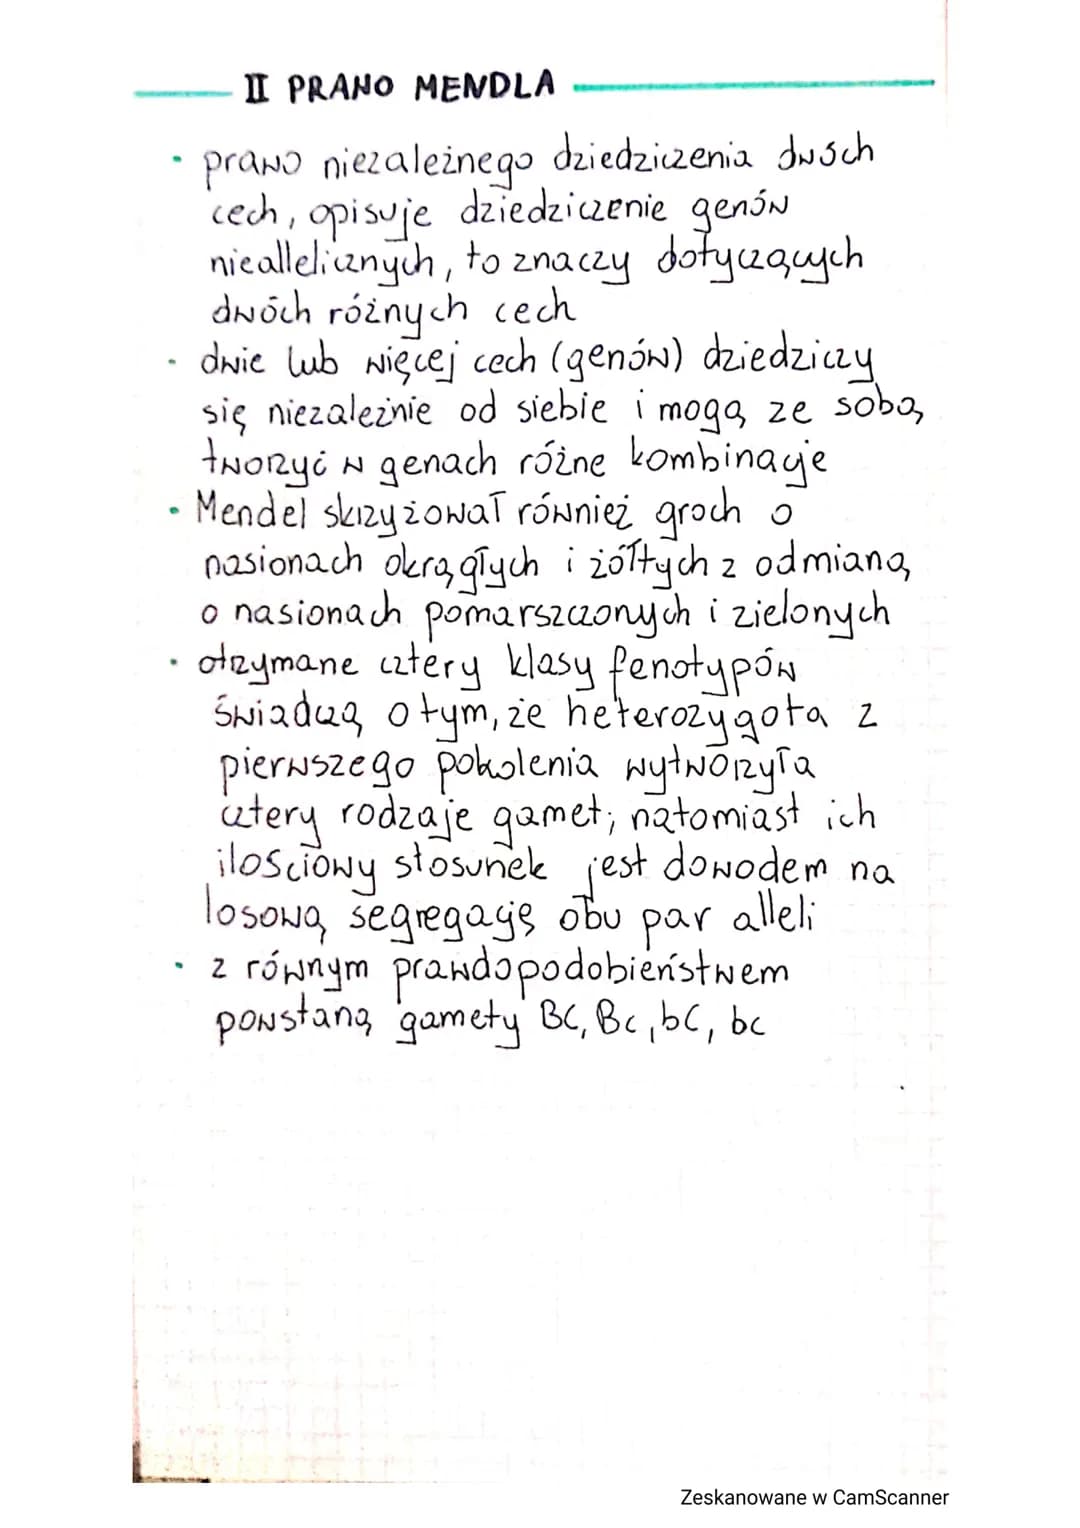 II PRAWO MENDLA
• prawo niezależnego dziedziczenia dwóch
cech, opisuje dziedziczenie genów
nieallelicznych, to znaczy dotyczących
dwóch różnych cech
• dwie lub więcej cech (genów) dziedziczy
się niezależnie od siebie i mogą ze sobą
tworzyć w genach różne kombinacje
• Mendel skrzyżował również groch o
nasionach okrągłych i żółtych z odmianą
o nasionach pomarszczonych i zielonych
• otrzymane cztery klasy fenotypów
świadczą o tym, że heterozygota z
pierwszego pokolenia wytworzyła
cztery rodzaje gamet; natomiast ich
ilościowy stosunek jest dowodem na
losową segregację obu par alleli
• z równym prawdopodobieństwem
powstaną gamety BC, Bc, bC, bc
Zeskanowane w CamScanner